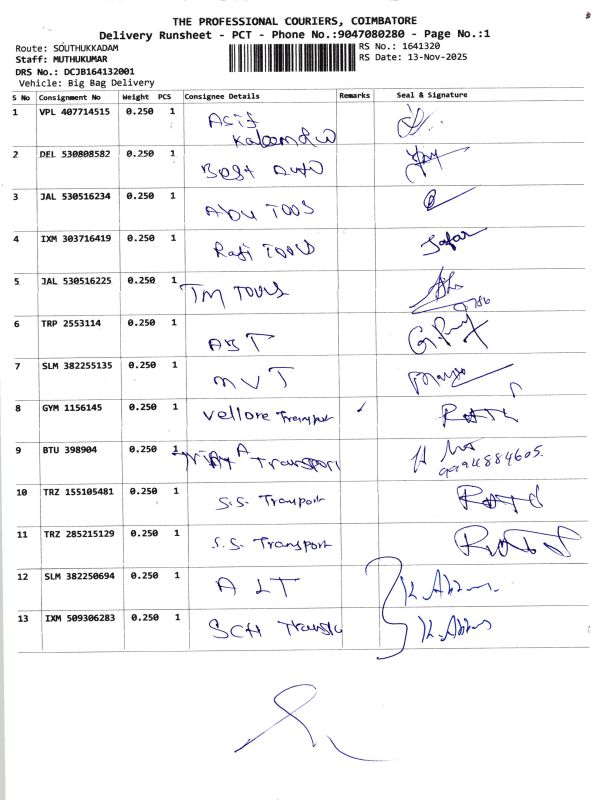 THE PROFESSIONAL COURIERS, COIMBATORE
Delivery Runsheet - PCT - Phone No.:9047080280 - Page No.:1
Route: SOUTHUKKADAM
RS No.: 1641320
Staff: MUTHUKUMAR
RS Date: 13-Nov-2025
DRS No.: DCJB164132001
Vehicle: Big Bag Delivery
S No Consignment No Weight PCS Consignee Details Remarks Seal & Signature
1 VPL 407714515 0.250 1 Asif
2 DEL 530808582 0.250 1 Best Auto
3 JAL 530516234 0.250 1 Abu TOOS
4 IXM 303716419 0.250 1 Rafi TOOLS Jafar
5 JAL 530516225 0.250 1 TM TOOLS
6 TRP 2553114 0.250 1
7 SLM 382255135 0.250 1 MVT
8 GYM 1156145 0.250 1 Vellore Transport
9 BTU 398904 0.250 1 Transport
10 TRZ 155105481 0.250 1 S.S. Transport
11 TRZ 285215129 0.250 1 S.S. Transport
12 SLM 382250694 0.250 1 ALT
13 IXM 509306283 0.250 1